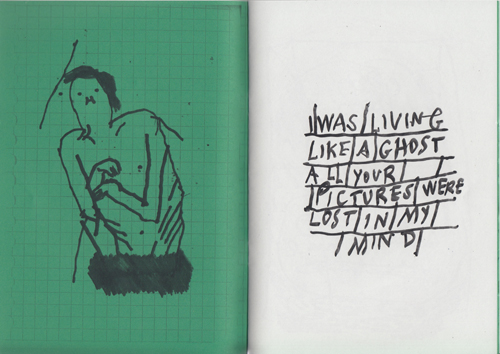 I WAS LIVING
LIKE A GHOST
ALL YOUR
PICTURES WERE
LOST IN MY
MIND